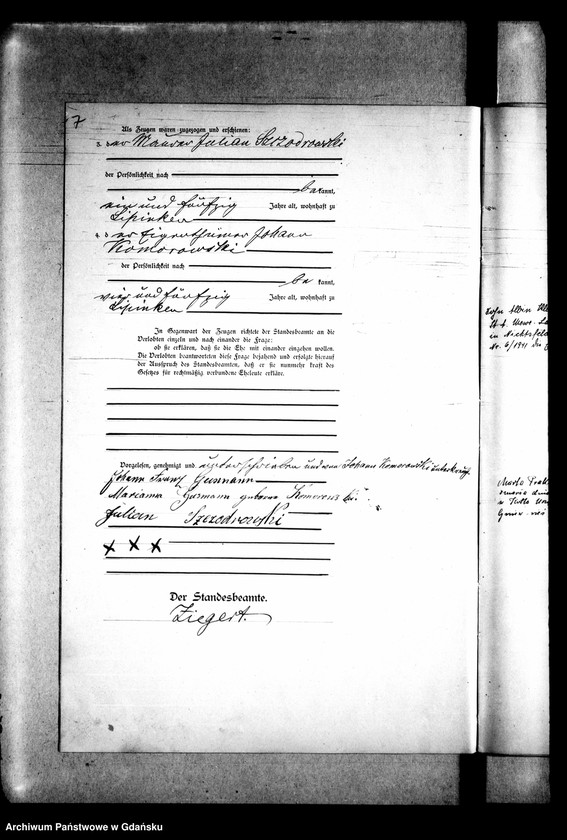 7
Als Zeugen waren zugezogen und erschienen:
3. der Maurer Julian Szczodrowski
der Persönlichkeit nach
be kannt,
ein und fünfzig Jahre alt, wohnhaft zu
Lipinken
4. der Eigenthümer Johann
Komorowski
der Persönlichkeit nach
be kannt,
vier und fünfzig Jahre alt, wohnhaft zu
Lipinken
In Gegenwart der Zeugen richtete der Standesbeamte an die
Verlobten einzeln und nach einander die Frage:
ob sie erklären, daß sie die Ehe mit einander eingehen wollen.
Die Verlobten beantworteten diese Frage bejahend und erfolgte hierauf
der Ausspruch des Standesbeamten, daß er sie nunmehr kraft des
Gesetzes für rechtmäßig verbundene Eheleute erkläre.
Vorgelesen, genehmigt und unterschrieben und von Johann Komorowski unterkreuzt
Johann Franz Gusmann
Marianna Gusmann geborne Komorowski
Julian Szczodrowski
X X X
Der Standesbeamte.
Ziegert.
Nr. 6/1941
Archiwum Państwowe w Gdańsku